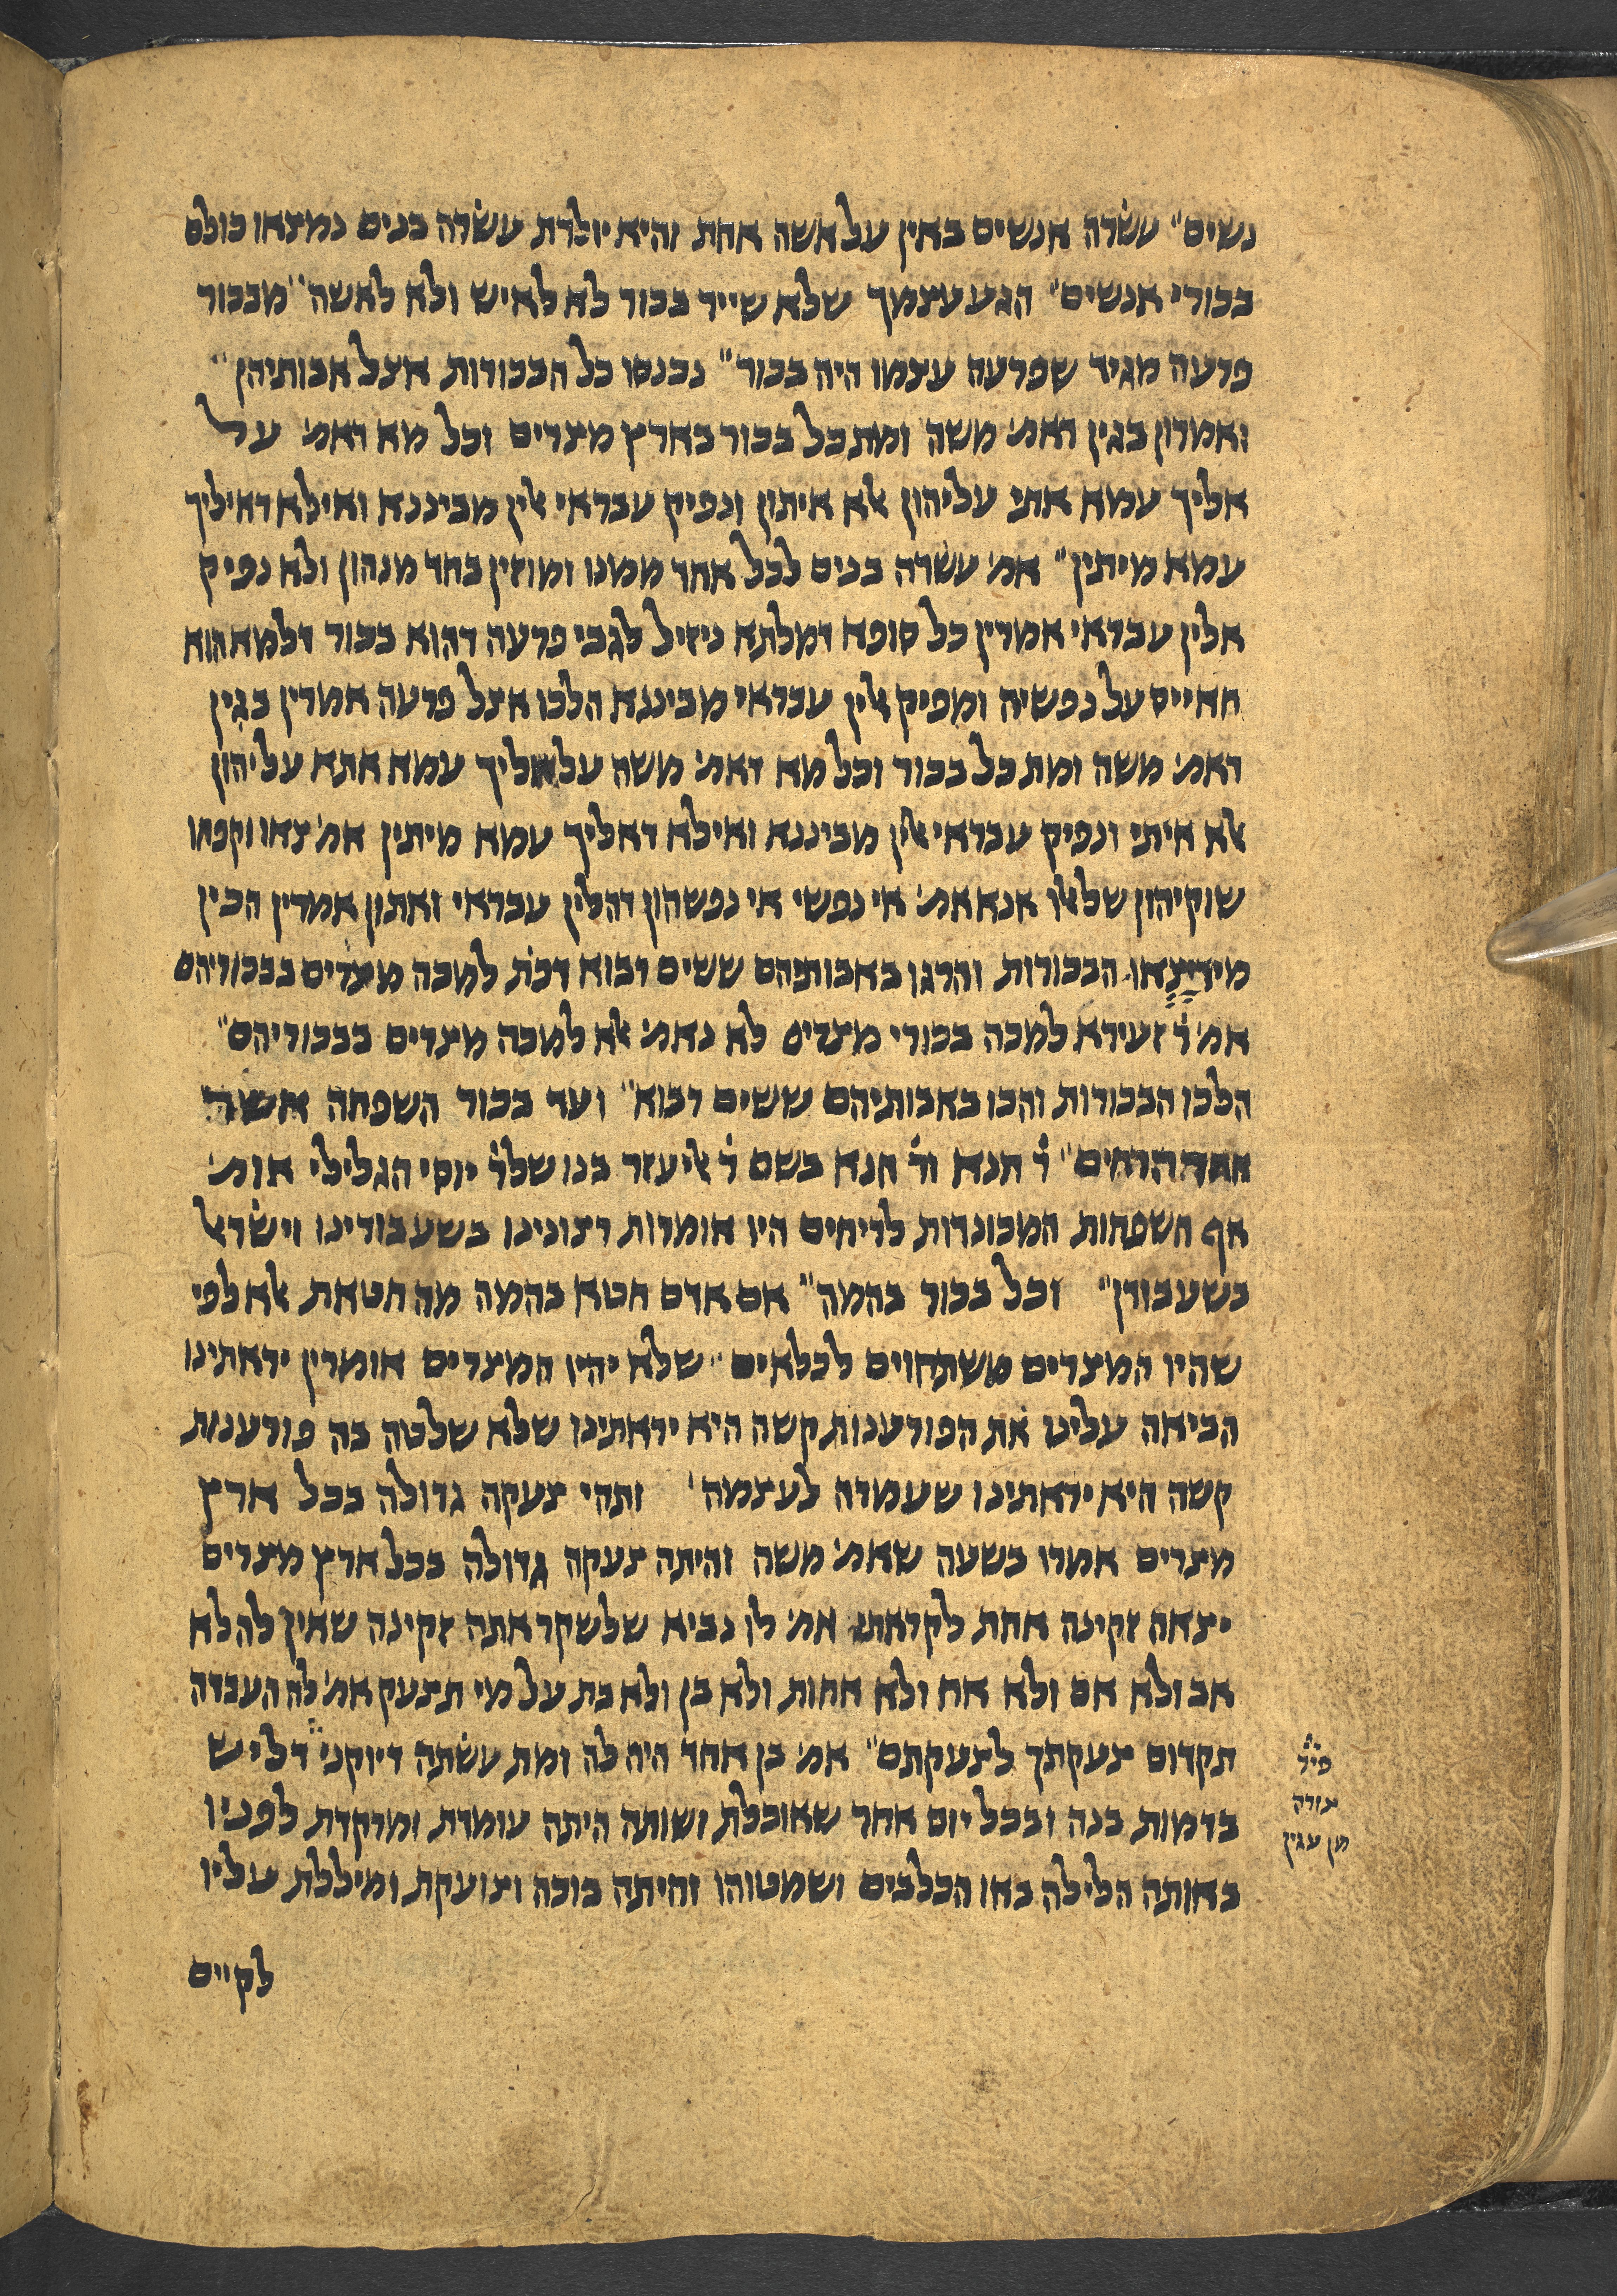 נשים״ עשרה אנשים באין על אשה אחת והיא יולדת עשרה בנים נמצאו כולם
בכורי אנשים״ הגע עצמך שלא שייר בכור לא לאיש ולא לאשה״ מבכור
פרעה מגיד שפרעה עצמו היה בכור״ נכנסו כל הבכורות אצל אבותיהן״
ואמרון בגין דאמ׳ משה ומת כל בכור בארץ מצרים וכל מא דאמ׳ על
אליך עמא אתי עליהון אלא איתון ונפיק עבראי אלין מביננא ואילא דאיליך
עמא מיתין״ אמ׳ עשרה בנים לכל אחד ממנו ומוזין בחד מנהון ולא נפיק
אלין עבראי אמרין כל סופא דמלתא ניזיל לגבי פרעה דהוא בכור דלמא הוא
חאייס על נפשיה ומפיק אלין עבראי מביננא הלכו אצל פרעה אמרין בגין
דאמ׳ משה ומת כל בכור וכל מא דאמ׳ משה על אליך עמא אתא עליהון
אלא איתי ונפיק עבראי אלין מביננא ואילא דאליך עמא מיתין אמ׳ צאו וקפחו
שוקיהון שלאלו אנא אמ׳ אי נפשי אי נפשהון דהלין עבראי ואתון אמרין הכין
מיד יצאו הבכורות והרגו באבותיהם ששים רבוא דכת׳ למכה מצרים בבכוריהם
אמ׳ ר׳ זעירא למכה בכורי מצרים לא נאמ׳ אלא למכה מצרים בבכוריהם״
הלכו הבכורות והכו באבותיהם ששים רבוא״ ועד בכור השפחה אשר
אחר הרחים״ ר׳ חנא ור׳ חנא בשם ר׳ אליעזר בנו שלר׳ יוסי הגלילי אומ׳
אף השפחות המכונדות לריחים היו אומרות רצונינו בשעבודינו וישראל
בשעבודן״ וכל בכור בהמה״ אם אדם חטא בהמה מה חטאת אלא לפי
שהיו המצרים משתחוים לכלאים״ שלא יהיו המצרים אומרין יראתינו
הביאה עלינו את הפורענות קשה היא יראתינו שלא שלטה בה פורענות
קשה היא יראתינו שעמדה לעצמה׳ ותהי צעקה גדולה בכל ארץ
מצרים אמרו בשעה שאמ׳ משה והיתה צעקה גדולה בכל ארץ מצרים
יצאה זקינה אחת לקראתו אמ׳ לו נביא שלשקר אתה זקינה שאין לה לא
אב ולא אם ולא אח ולא אחות ולא בן ולא בת על מי תצעק אמ׳ לה העבדה
תקדום צעקתך לצעקתם״ אמ׳ בן אחד היה לה ומת עשתה דיוקני״ דליש
פי׳
צורה
מן עגין
בדמות בנה ובכל יום אחד שאוכלת ושותה היתה עומדת ומרקדת לפניו
באותה הלילה באו הכלבים ושמטוהו והיתה בוכה וצועקת ומיללת עליו
לקיים